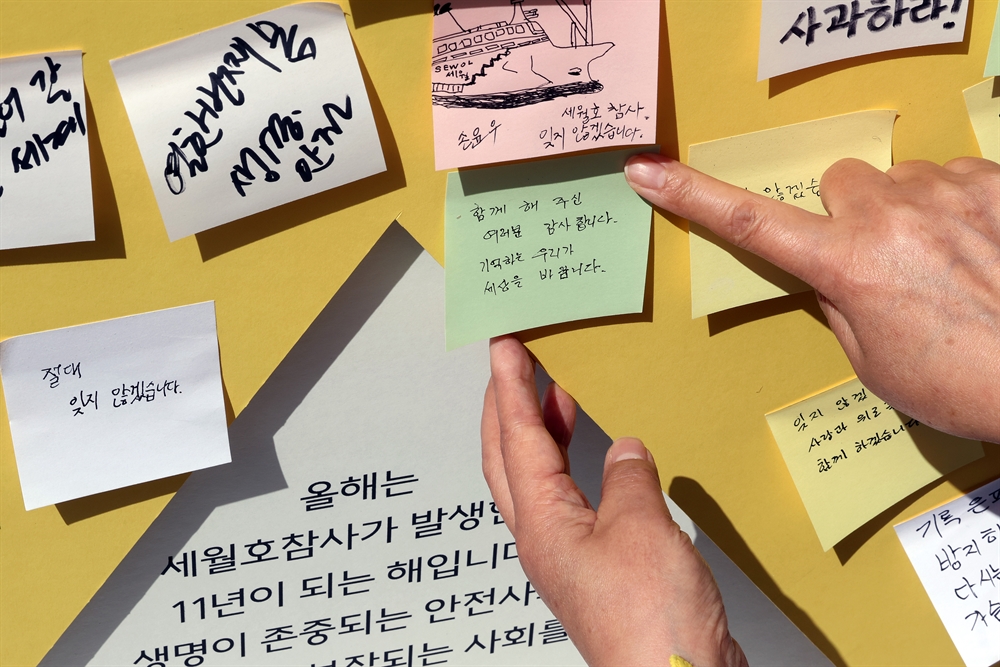 사과하라!
SEWOL
세월
세월호 참사.
손윤우
잊지 않겠습니다.
생명
안전
세계
함께 해 주신
여러분 감사 합니다.
기억하는 우리가
세상을 바꿉니다.
않겠습
절대
잊지 않겠습니다.
잊지 않겠
사랑과 위로
함께 하겠습니다
기록
방지하
올해는
세월호참사가 발생한
11년이 되는 해입니다
생명이 존중되는 안전사
보장되는 사회를